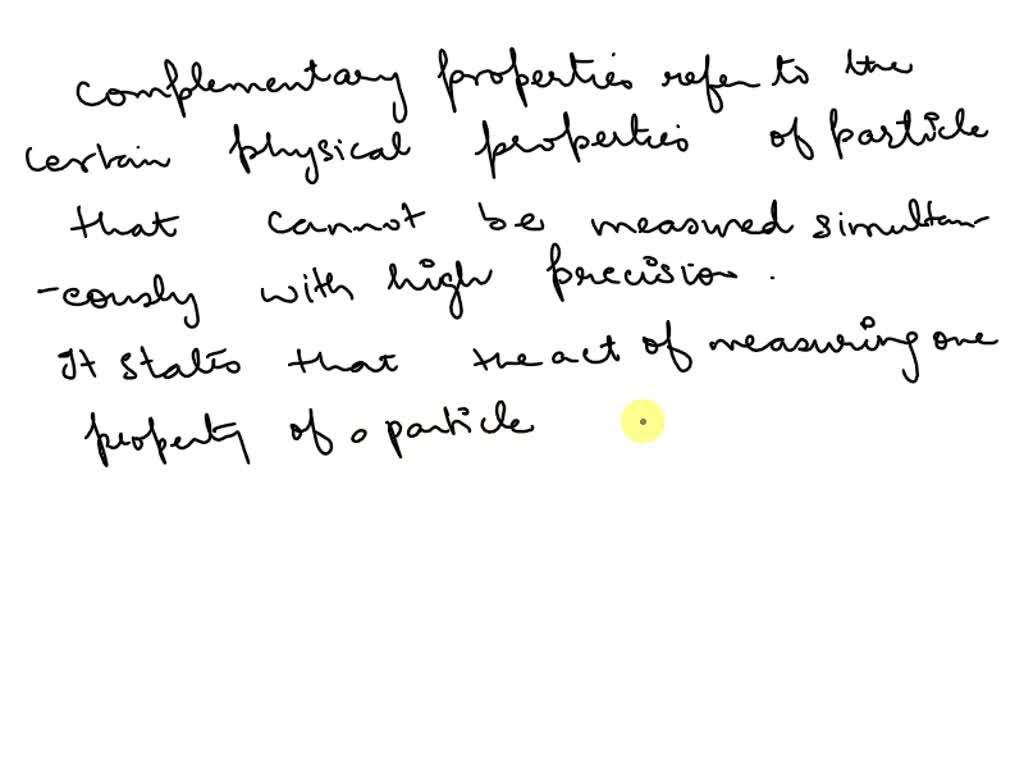 complementary properties refer to the
certain physical properties of particle
that cannot be measured simultan-
-eously with high precision.
It states that the act of measuring one
property of a particle